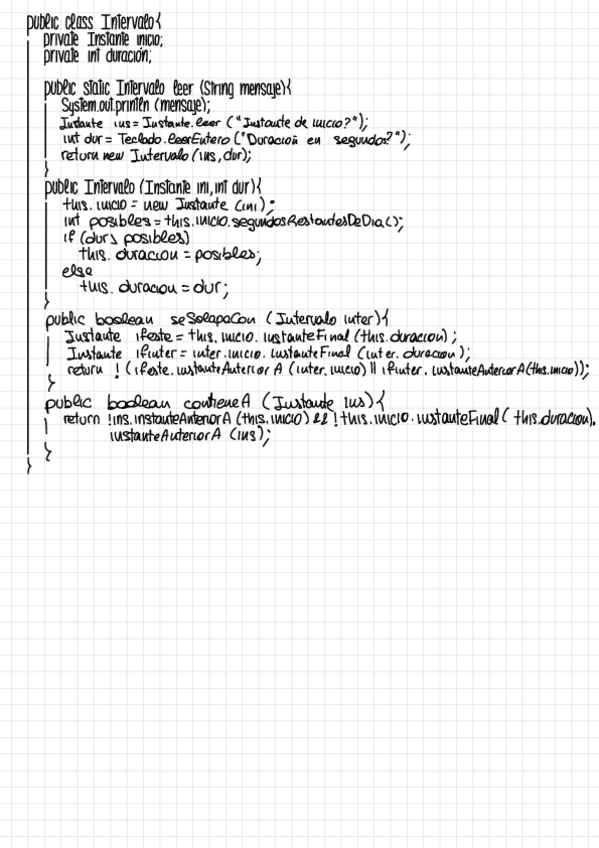 public class Intervalo{
private Instante inicio;
private int duración;
public static Intervalo leer (String mensaje){
System.out.println (mensaje);
Instante ins = Instante.leer ("Instante de inicio?");
int dur = Teclado.leerEntero ("Duración en segundos?");
return new Intervalo (ins, dur);
}
public Intervalo (Instante ini, int dur){
this.inicio = new Instante (ini);
int posibles = this.inicio.segundosRestantesDeDia();
if (dur > posibles)
this.duracion = posibles;
else
this.duracion = dur;
}
public boolean seSolapaCon (Intervalo inter){
Instante ifeste = this.inicio.instanteFinal (this.duracion);
Instante ifinter = inter.inicio.instanteFinal (inter.duracion);
return !(ifeste.instanteAnteriorA (inter.inicio) || ifinter.instanteAnteriorA(this.inicio));
}
public boolean contieneA (Instante ins){
return !ins.instanteAnteriorA (this.inicio) && !this.inicio.instanteFinal(this.duracion).
instanteAnteriorA (ins);
}
}